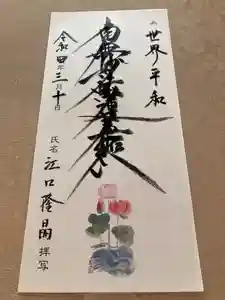 世界平和
南無妙法蓮華経
令和四年三月十日
氏名 江口隆昌 拝写